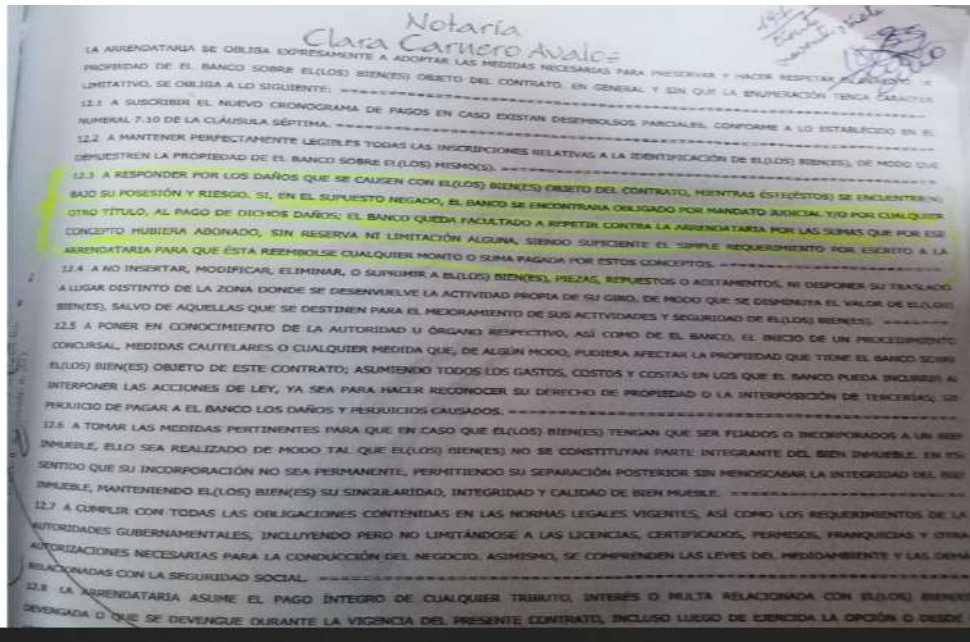 Notaría
Clara Carnero Avalos
LA ARRENDATARIA SE OBLIGA EXPRESAMENTE A ADOPTAR LAS MEDIDAS NECESARIAS PARA PRESERVAR Y HACER RESPETAR
PROPIEDAD DE EL BANCO SOBRE EL(LOS) BIEN(ES) OBJETO DEL CONTRATO. EN GENERAL Y SIN QUE LA ENUMERACIÓN TENGA CARÁCTER
LIMITATIVO, SE OBLIGA A LO SIGUIENTE:
12.1 A SUSCRIBIR EL NUEVO CRONOGRAMA DE PAGOS EN CASO EXISTAN DESEMBOLSOS PARCIALES, CONFORME A LO ESTABLECIDO EN EL
NUMERAL 7.10 DE LA CLÁUSULA SÉPTIMA.
12.2 A MANTENER PERFECTAMENTE LEGIBLES TODAS LAS INSCRIPCIONES RELATIVAS A LA IDENTIFICACIÓN DE EL(LOS) BIEN(ES), DE MODO QUE
DEMUESTREN LA PROPIEDAD DE EL BANCO SOBRE EL(LOS) MISMO(S).
12.3 A RESPONDER POR LOS DAÑOS QUE SE CAUSEN CON EL(LOS) BIEN(ES) OBJETO DEL CONTRATO, MIENTRAS ÉSTE(ÉSTOS) SE ENCUENTRE(N)
BAJO SU POSESIÓN Y RIESGO. SI, EN EL SUPUESTO NEGADO, EL BANCO SE ENCONTRARA OBLIGADO POR MANDATO JUDICIAL Y/O POR CUALQUIER
OTRO TÍTULO, AL PAGO DE DICHOS DAÑOS; EL BANCO QUEDA FACULTADO A REPETIR CONTRA LA ARRENDATARIA POR LAS SUMAS QUE POR ESE
CONCEPTO HUBIERA ABONADO, SIN RESERVA NI LIMITACIÓN ALGUNA, SIENDO SUFICIENTE EL SIMPLE REQUERIMIENTO POR ESCRITO A LA
ARRENDATARIA PARA QUE ÉSTA REEMBOLSE CUALQUIER MONTO O SUMA PAGADA POR ESTOS CONCEPTOS.
12.4 A NO INSERTAR, MODIFICAR, ELIMINAR, O SUPRIMIR A EL(LOS) BIEN(ES), PIEZAS, REPUESTOS O ADITAMENTOS, NI DISPONER SU TRASLADO
A LUGAR DISTINTO DE LA ZONA DONDE SE DESENVUELVE LA ACTIVIDAD PROPIA DE SU GIRO, DE MODO QUE SE DISMINUYA EL VALOR DE EL(LOS)
BIEN(ES), SALVO DE AQUELLAS QUE SE DESTINEN PARA EL MEJORAMIENTO DE SUS ACTIVIDADES Y SEGURIDAD DE EL(LOS) BIEN(ES).
12.5 A PONER EN CONOCIMIENTO DE LA AUTORIDAD U ÓRGANO RESPECTIVO, ASÍ COMO DE EL BANCO, EL INICIO DE UN PROCEDIMIENTO
CONCURSAL, MEDIDAS CAUTELARES O CUALQUIER MEDIDA QUE, DE ALGÚN MODO, PUDIERA AFECTAR LA PROPIEDAD QUE TIENE EL BANCO SOBRE
EL(LOS) BIEN(ES) OBJETO DE ESTE CONTRATO; ASUMIENDO TODOS LOS GASTOS, COSTOS Y COSTAS EN LOS QUE EL BANCO PUEDA INCURRIR AL
INTERPONER LAS ACCIONES DE LEY, YA SEA PARA HACER RECONOCER SU DERECHO DE PROPIEDAD O LA INTERPOSICIÓN DE TERCERÍAS; SIN
PERJUICIO DE PAGAR A EL BANCO LOS DAÑOS Y PERJUICIOS CAUSADOS.
12.6 A TOMAR LAS MEDIDAS PERTINENTES PARA QUE EN CASO QUE EL(LOS) BIEN(ES) TENGAN QUE SER FIJADOS O INCORPORADOS A UN BIEN
INMUEBLE, ELLO SEA REALIZADO DE MODO TAL QUE EL(LOS) BIEN(ES) NO SE CONSTITUYAN PARTE INTEGRANTE DEL BIEN INMUEBLE. EN ESE
SENTIDO QUE SU INCORPORACIÓN NO SEA PERMANENTE, PERMITIENDO SU SEPARACIÓN POSTERIOR SIN MENOSCABAR LA INTEGRIDAD DEL BIEN
INMUEBLE, MANTENIENDO EL(LOS) BIEN(ES) SU SINGULARIDAD, INTEGRIDAD Y CALIDAD DE BIEN MUEBLE.
12.7 A CUMPLIR CON TODAS LAS OBLIGACIONES CONTENIDAS EN LAS NORMAS LEGALES VIGENTES, ASÍ COMO LOS REQUERIMIENTOS DE LA
AUTORIDADES GUBERNAMENTALES, INCLUYENDO PERO NO LIMITÁNDOSE A LAS LICENCIAS, CERTIFICADOS, PERMISOS, FRANQUICIAS Y OTRA
AUTORIZACIONES NECESARIAS PARA LA CONDUCCIÓN DEL NEGOCIO. ASIMISMO, SE COMPRENDEN LAS LEYES DEL MEDIOAMBIENTE Y LAS DEMÁ
RELACIONADAS CON LA SEGURIDAD SOCIAL.
12.8 LA ARRENDATARIA ASUME EL PAGO ÍNTEGRO DE CUALQUIER TRIBUTO, INTERÉS O MULTA RELACIONADA CON EL(LOS) BIEN(ES)
DEVENGADA O QUE SE DEVENGUE DURANTE LA VIGENCIA DEL PRESENTE CONTRATO, INCLUSO LUEGO DE EJERCIDA LA OPCIÓN O DESDE